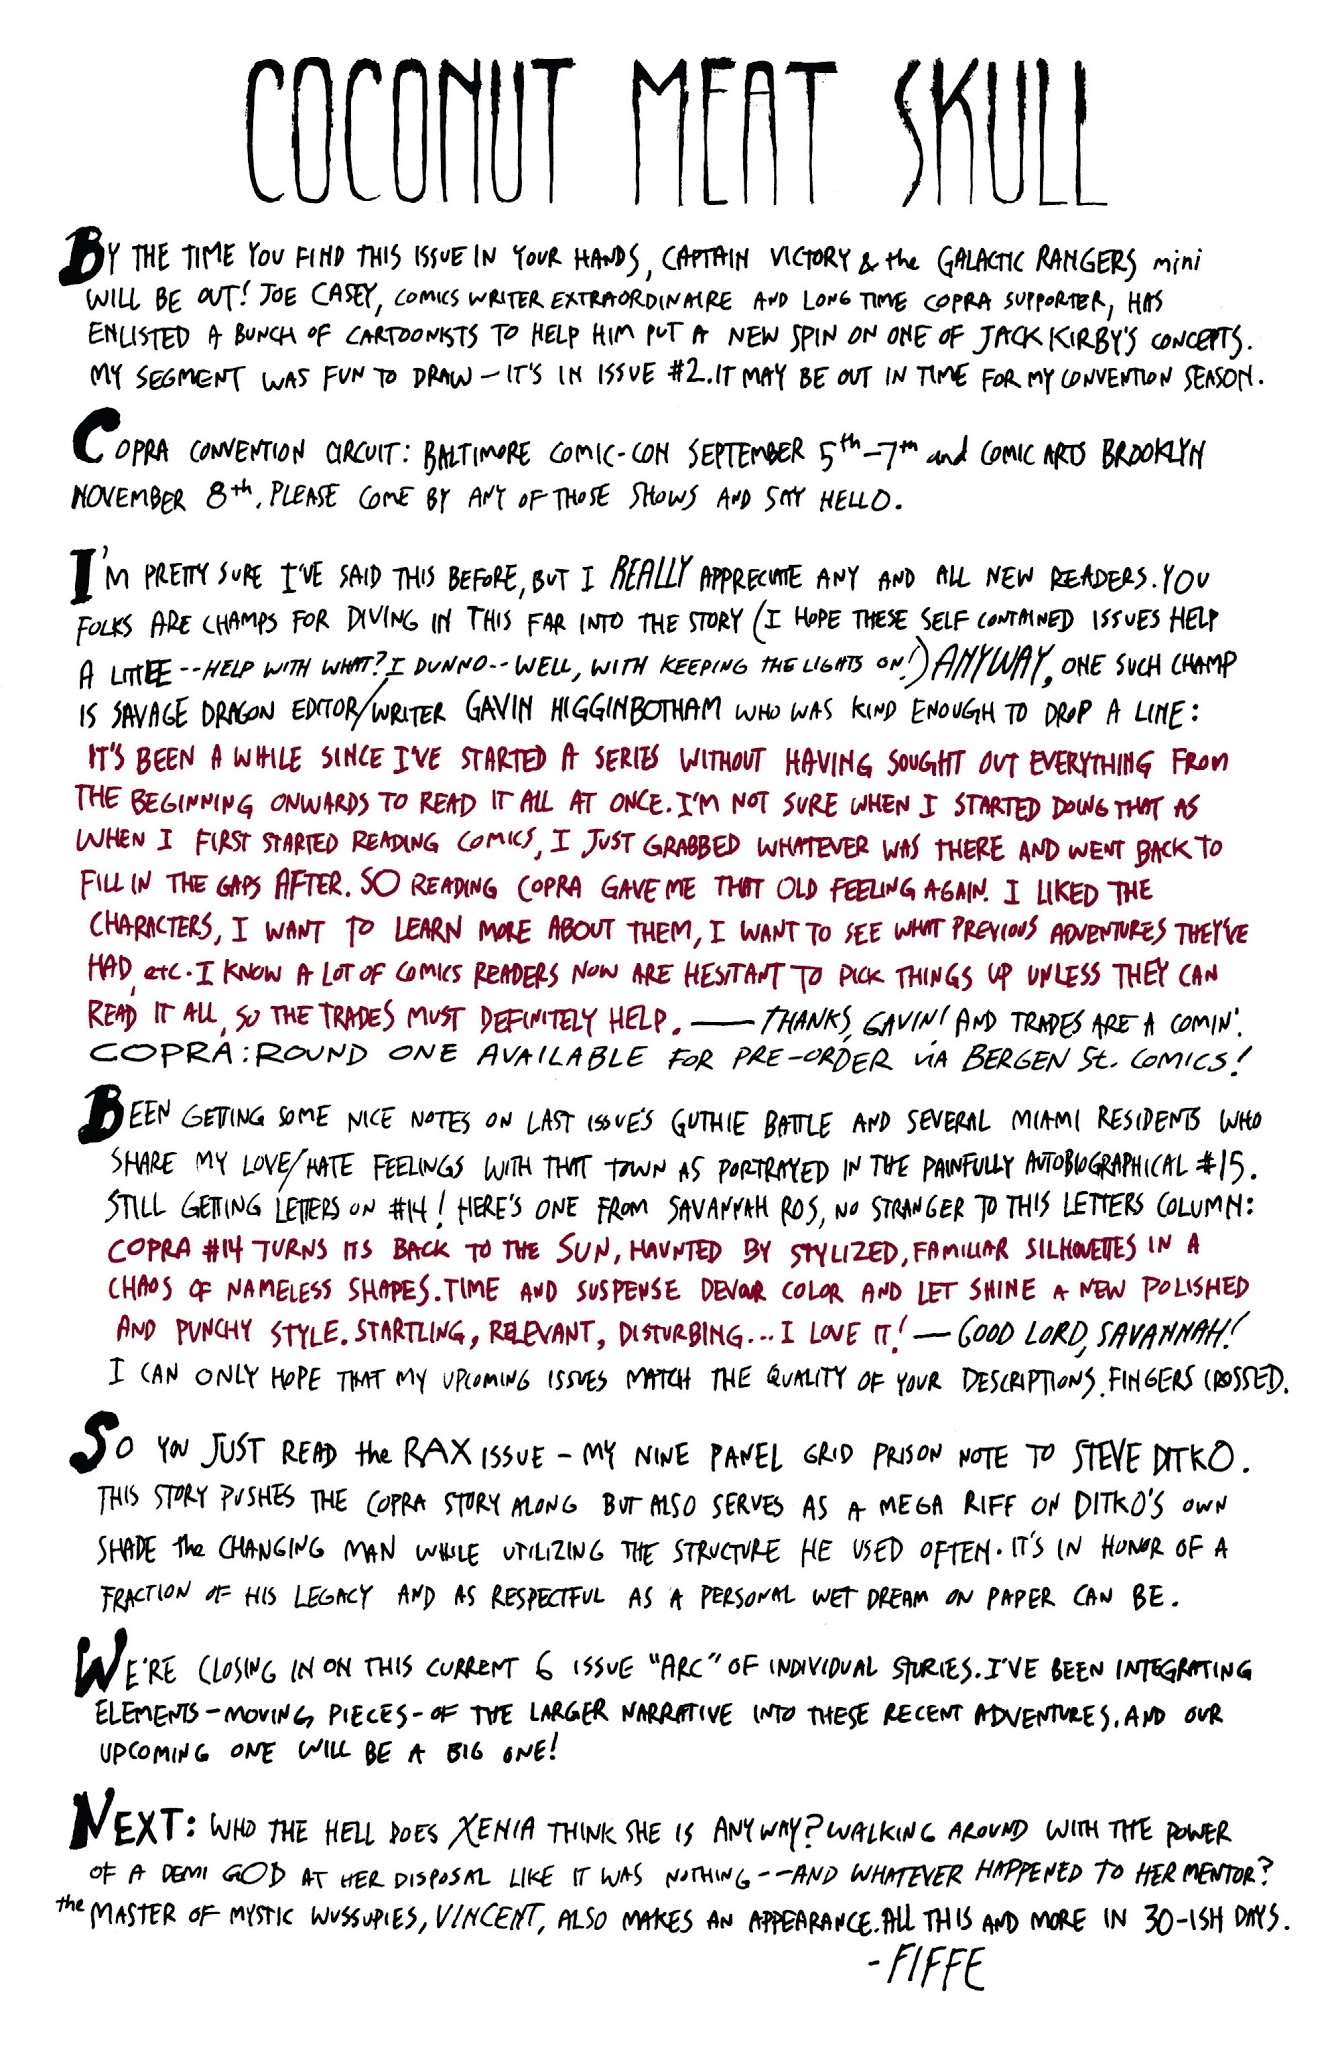 COCONUT MEAT SKULL
BY THE TIME YOU FIND THIS ISSUE IN YOUR HANDS, CAPTAIN VICTORY & the GALACTIC RANGERS mini
WILL BE OUT! JOE CASEY, COMICS WRITER EXTRAORDINAIRE AND LONG TIME COPRA SUPPORTER, HAS
ENLISTED A BUNCH OF CARTOONISTS TO HELP HIM PUT A NEW SPIN ON ONE OF JACK KIRBY'S CONCEPTS.
MY SEGMENT WAS FUN TO DRAW – IT'S IN ISSUE #2. IT MAY BE OUT IN TIME FOR MY CONVENTION SEASON.
COPRA CONVENTION CIRCUIT: BALTIMORE COMIC-CON SEPTEMBER 5th–7th and COMIC ARTS BROOKLYN
NOVEMBER 8th. PLEASE COME BY ANY OF THOSE SHOWS AND SAY HELLO.
I'M PRETTY SURE I'VE SAID THIS BEFORE, BUT I REALLY APPRECIATE ANY AND ALL NEW READERS. YOU
FOLKS ARE CHAMPS FOR DIVING IN THIS FAR INTO THE STORY (I HOPE THESE SELF CONTAINED ISSUES HELP
A LITTLE -- HELP WITH WHAT? I DUNNO -- WELL, WITH KEEPING THE LIGHTS ON!) ANYWAY, ONE SUCH CHAMP
IS SAVAGE DRAGON EDITOR/WRITER GAVIN HIGGINBOTHAM WHO WAS KIND ENOUGH TO DROP A LINE:
IT'S BEEN A WHILE SINCE I'VE STARTED A SERIES WITHOUT HAVING SOUGHT OUT EVERYTHING FROM
THE BEGINNING ONWARDS TO READ IT ALL AT ONCE. I'M NOT SURE WHEN I STARTED DOING THAT AS
WHEN I FIRST STARTED READING COMICS, I JUST GRABBED WHATEVER WAS THERE AND WENT BACK TO
FILL IN THE GAPS AFTER. SO READING COPRA GAVE ME THAT OLD FEELING AGAIN. I LIKED THE
CHARACTERS, I WANT TO LEARN MORE ABOUT THEM, I WANT TO SEE WHAT PREVIOUS ADVENTURES THEY'VE
HAD, etc. I KNOW A LOT OF COMICS READERS NOW ARE HESITANT TO PICK THINGS UP UNLESS THEY CAN
READ IT ALL, SO THE TRADES MUST DEFINITELY HELP. — THANKS, GAVIN! AND TRADES ARE A COMIN'.
COPRA: ROUND ONE AVAILABLE FOR PRE-ORDER via BERGEN St. COMICS!
BEEN GETTING SOME NICE NOTES ON LAST ISSUE'S GUTHIE BATTLE AND SEVERAL MIAMI RESIDENTS WHO
SHARE MY LOVE/HATE FEELINGS WITH THAT TOWN AS PORTRAYED IN THE PAINFULLY AUTOBIOGRAPHICAL #15.
STILL GETTING LETTERS ON #14! HERE'S ONE FROM SAVANNAH ROS, NO STRANGER TO THIS LETTERS COLUMN:
COPRA #14 TURNS ITS BACK TO THE SUN, HAUNTED BY STYLIZED, FAMILIAR SILHOUETTES IN A
CHAOS OF NAMELESS SHAPES. TIME AND SUSPENSE DEVOUR COLOR AND LET SHINE A NEW POLISHED
AND PUNCHY STYLE. STARTLING, RELEVANT, DISTURBING... I LOVE IT! — GOOD LORD, SAVANNAH!
I CAN ONLY HOPE THAT MY UPCOMING ISSUES MATCH THE QUALITY OF YOUR DESCRIPTIONS. FINGERS CROSSED.
SO YOU JUST READ the RAX ISSUE – MY NINE PANEL GRID PRISON NOTE TO STEVE DITKO.
THIS STORY PUSHES THE COPRA STORY ALONG BUT ALSO SERVES AS A MEGA RIFF ON DITKO'S OWN
SHADE the CHANGING MAN WHILE UTILIZING THE STRUCTURE HE USED OFTEN. IT'S IN HONOR OF A
FRACTION OF HIS LEGACY AND AS RESPECTFUL AS A PERSONAL WET DREAM ON PAPER CAN BE.
WE'RE CLOSING IN ON THIS CURRENT 6 ISSUE "ARC" OF INDIVIDUAL STORIES. I'VE BEEN INTEGRATING
ELEMENTS – MOVING PIECES – OF THE LARGER NARRATIVE INTO THESE RECENT ADVENTURES. AND OUR
UPCOMING ONE WILL BE A BIG ONE!
NEXT: WHO THE HELL DOES XENIA THINK SHE IS ANYWAY? WALKING AROUND WITH THE POWER
OF A DEMI GOD AT HER DISPOSAL LIKE IT WAS NOTHING -- AND WHATEVER HAPPENED TO HER MENTOR?
the MASTER OF MYSTIC WUSSUPIES, VINCENT, ALSO MAKES AN APPEARANCE. ALL THIS AND MORE IN 30-ISH DAYS.
- FIFFE